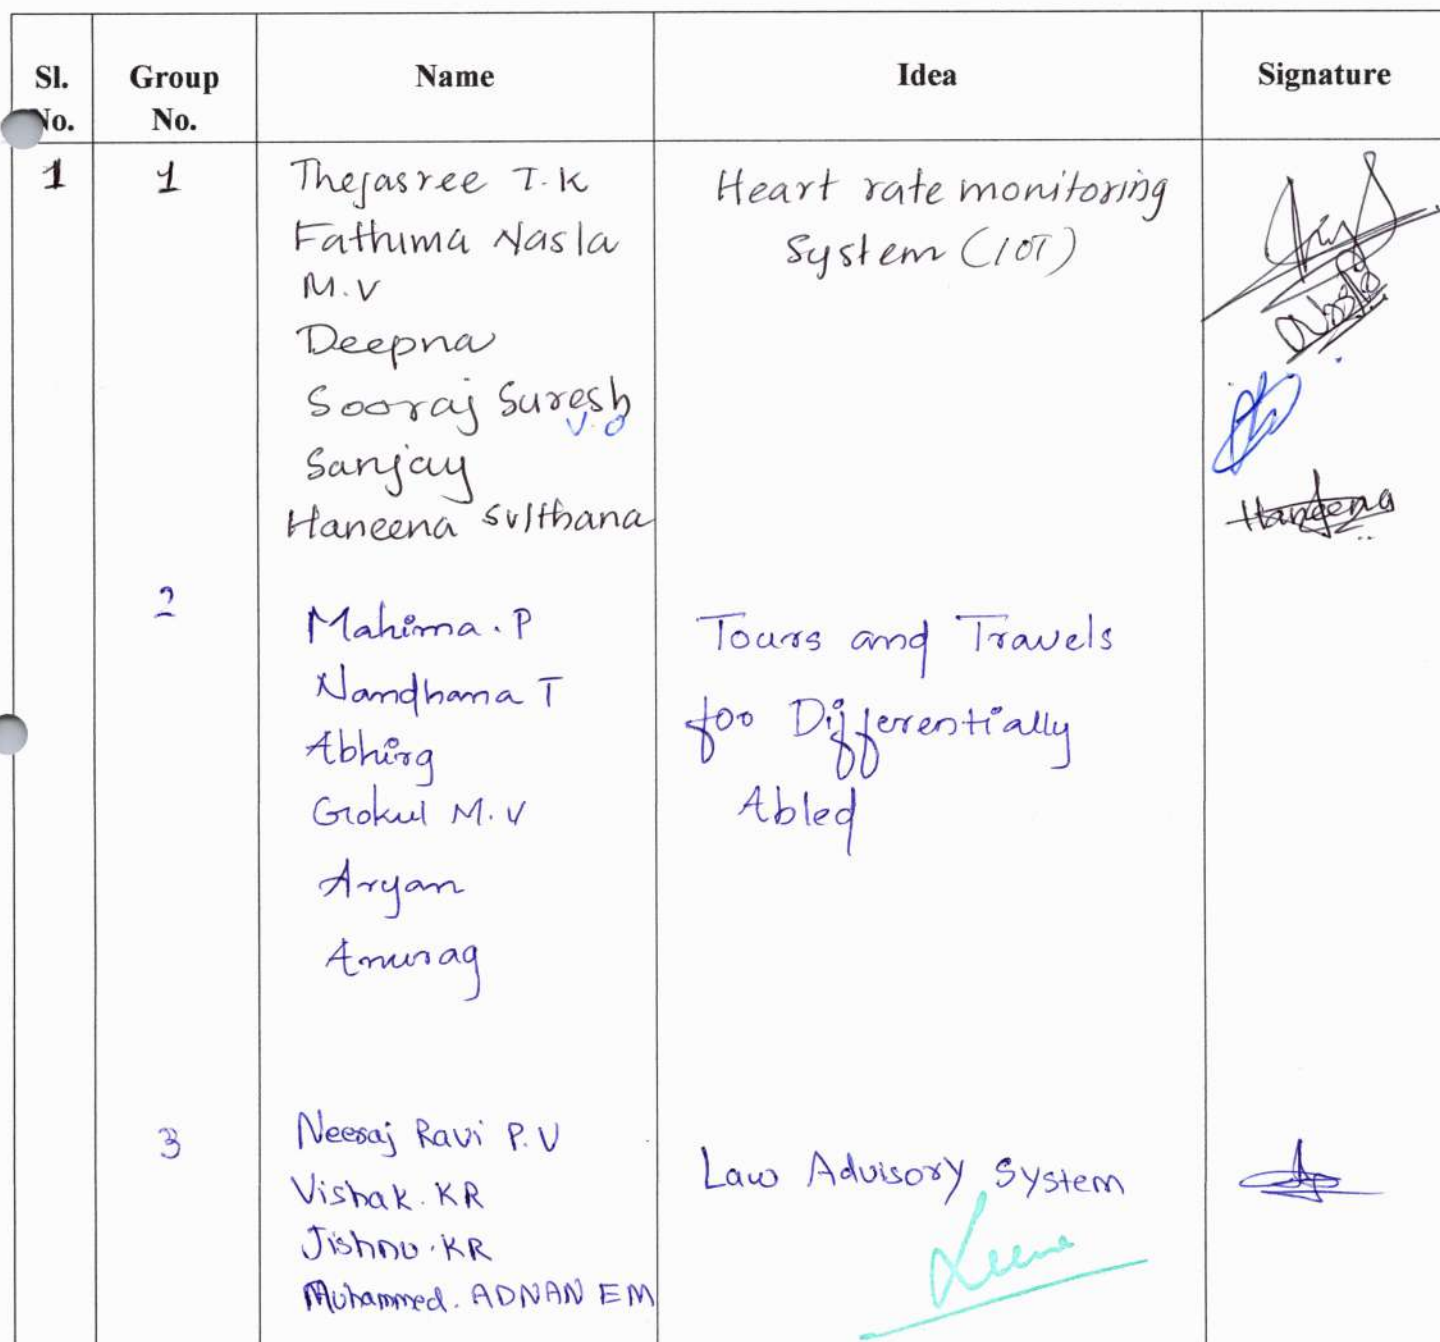 Sl. No.
Group No.
Name
Idea
Signature
1
1
Thejasree T.K
Fathima Nasla
M.V
Deepna
Sooraj Suresh
V.O
Sanjay
Haneena Sulthana
Heart rate monitoring
System (IOT)
Nasla
Haneena
2
Mahima. P
Nandhana T
Abhirg
Gokul M. V
Aryan
Anurag
Tours and Travels
for Differentially
Abled
3
Neeraj Ravi P. V
Vishak. KR
Jishnu. KR
Muhammed. ADNAN EM
Law Advisory System